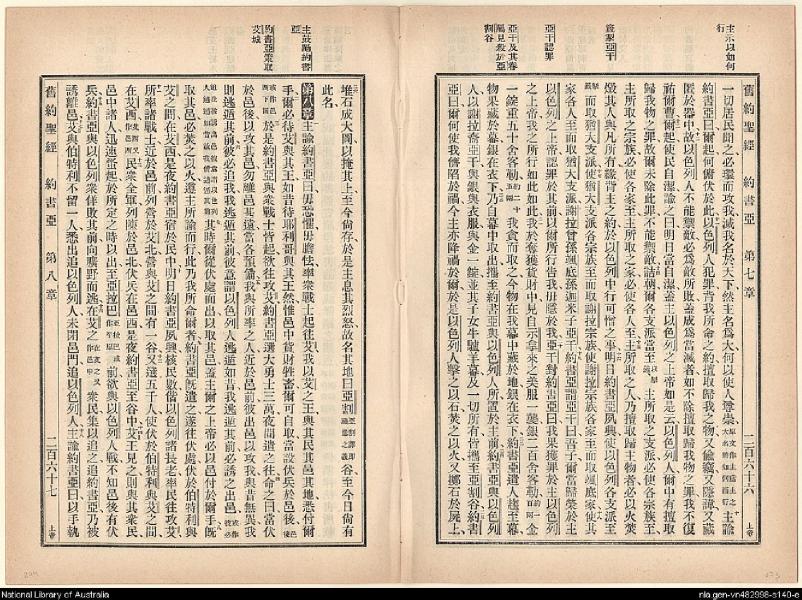 主示以如何
行
簽掣亞干
亞干認罪
亞干及其眷
屬見殺於亞
割谷
舊約聖經 約書亞 第七章 二百六十六 上帝
一切居民聞之必環而攻我滅我名於天下然主名爲大何以使人尊崇主諭
約書亞曰爾起何俯伏於此以色列人犯罪背我所命之約擅取歸我之物又偷竊又隱諱又藏
匿於器中故以色列人不能禦敵必爲敵所敗蓋成爲當滅者如不除擅取歸我物之罪我不復
祐爾曹爾起使民自潔諭之曰明日當自潔蓋主以色列之上帝如是云以色列人爾中有擅取
歸我物之罪故爾未除此罪不能禦敵詰朝爾各支派當至主所取之支派必使各宗族至
主所取之宗族必使各家至主所取之家必使各人至主所取之人乃擅取歸主物者必以火焚
燬其人與凡所有緣背主之約於以色列中行可憎之事明日約書亞夙興使以色列各支派至
而取猶大支派使猶大支派各宗族至而取謝拉宗族使謝拉宗族各家至而取颯底家使其
家各人至而取猶大支派謝拉曾孫颯底孫迦米子亞干約書亞謂亞干曰吾子爾當歸榮於主
以色列之上帝認罪於其前以爾所行告我毋隱於我亞干對約書亞曰我果獲罪於主以色列
之上帝我之所行如此如此我於奪獲貨財中見自示拿來之美服一襲銀二百舍客勒金
一錠重五十舍客勒我貪而取之今物在我幕中藏於地銀在衣下約書亞遣人趨至幕
物果藏於幕銀在衣下乃自幕中取出攜至約書亞與以色列人所置於主前約書亞與以色列
人以謝拉裔亞干與銀與衣服與金一錠並其子女牛驢羊幕及一切所有皆攜至亞割谷約書
亞曰爾何使我儕陷於禍今主亦降禍於爾於是以色列人擊之以石焚之以火又擲石於屍上
主鼓勵約書
亞
約書亞衆取
艾城
堆石成大圜以掩其上至今尚存於是主息其烈怒故名其地曰亞割谷至今日尚有
此名
第八章主諭約書亞曰毋恐懼毋膽怯率衆戰士起往艾我以艾之王與其民其邑其地悉付爾
手爾必待艾與其王如昔待耶利哥與其王然惟邑中貨財牲畜爾可自取當設伏兵於邑後
於是約書亞與衆戰士皆起欲往攻艾約書亞選大勇士三萬夜間遣之往命之曰當伏
於邑後以攻其邑勿離邑甚遠當各預備我與所率之人近於邑前彼出邑以攻我與昔無異我
則逃遁其前彼必追我我逃遁其前彼意謂以色列人逃遁如昔我逃遁其前必誘之出邑
其時爾從伏處而出以取其邑蓋主爾之上帝必以邑付於爾手旣
取其邑必焚之以火遵主所諭而行此乃我所命爾者約書亞旣遣之遂往伏處伏於伯特利與
艾之間在艾西是夜約書亞宿於民中明日約書亞夙興核民數偕以色列諸長老率民往攻艾
所率諸戰士至於邑前列營於艾北營與艾之間有一谷又選五千人使伏於伯特利與艾之間
在艾西民衆全軍列陳於邑北伏兵在邑西是夜約書亞至谷中艾王見之則與其衆民
邑中諸人迅速蚤起於所定之時以出至亞拉巴前欲與以色列人戰不知邑後有伏
兵約書亞與以色列衆佯敗其前向曠野而逃在艾之衆民集以追之追約書亞乃被
誘離邑艾與伯特利不留一人悉出追以色列人未閉邑門追以色列人主諭約書亞曰以手執
舊約聖經 約書亞 第八章 二百六十七 上帝
National Library of Australia
nla.gen-vn482998-s140-e